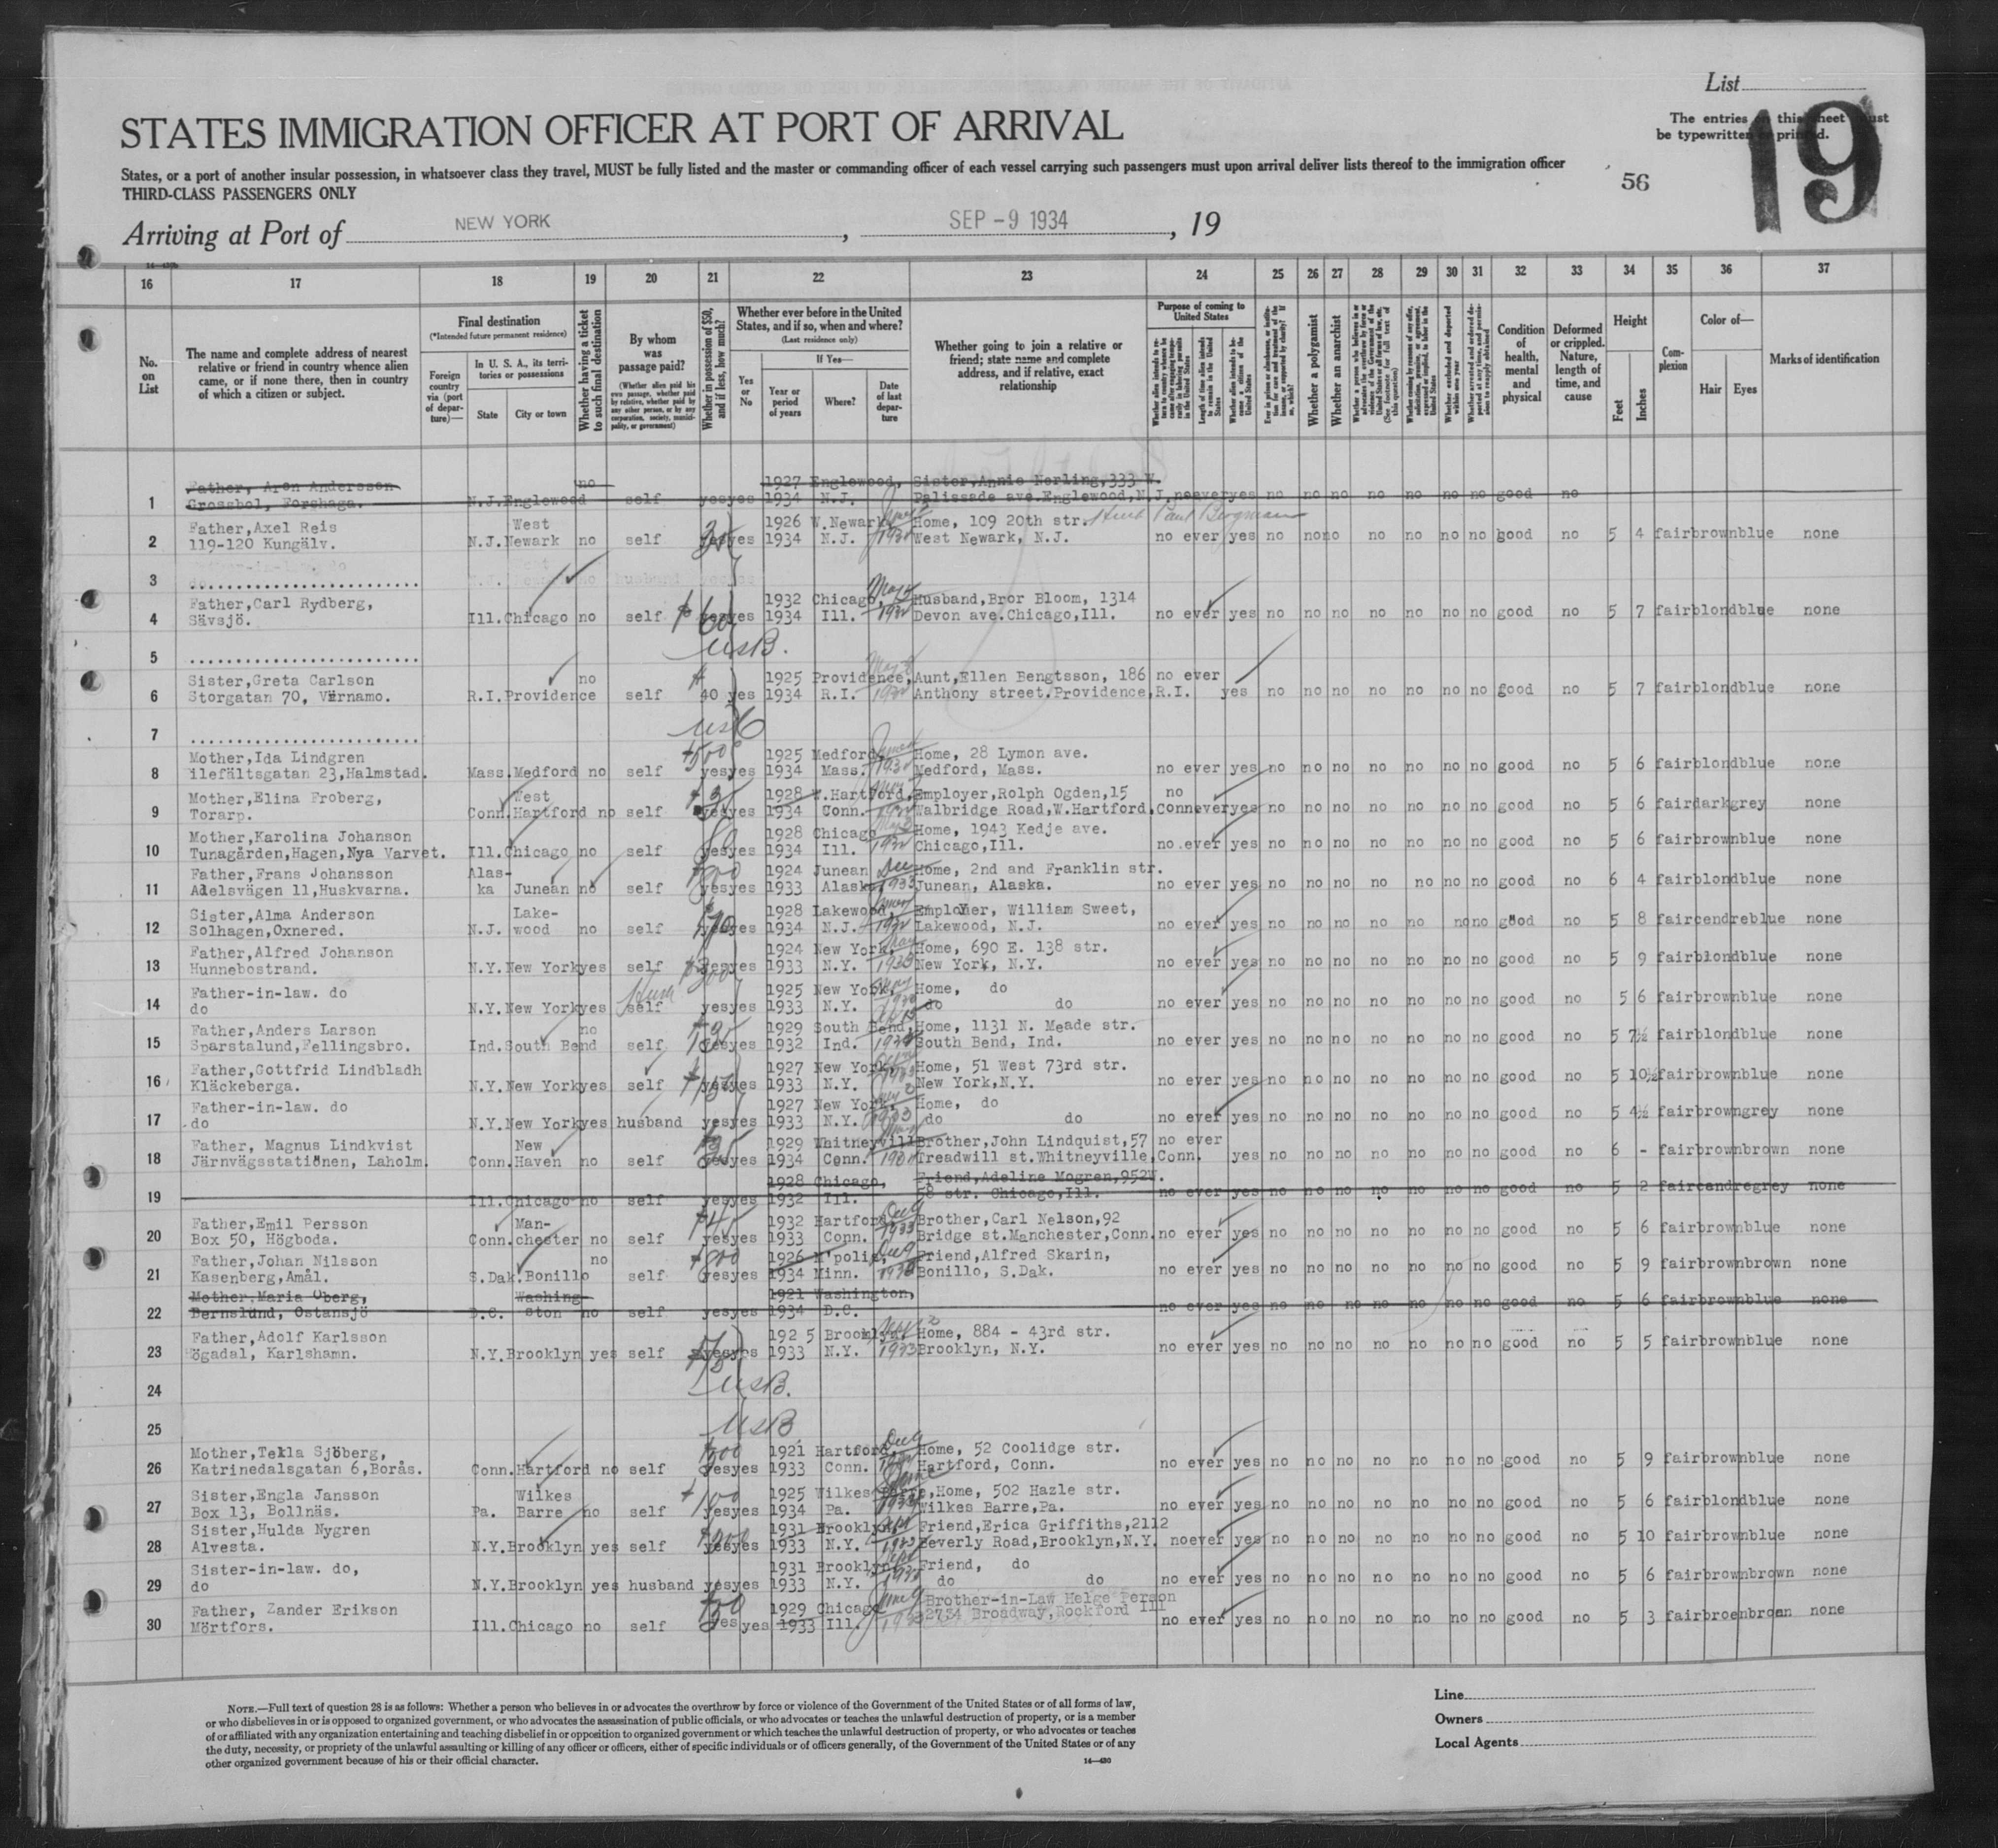 List
The entries on this sheet must
be typewritten or printed.
19
STATES IMMIGRATION OFFICER AT PORT OF ARRIVAL
States, or a port of another insular possession, in whatsoever class they travel, MUST be fully listed and the master or commanding officer of each vessel carrying such passengers must upon arrival deliver lists thereof to the immigration officer
THIRD-CLASS PASSENGERS ONLY
56
Arriving at Port of NEW YORK , SEP -9 1934 , 19
16 17 18 19 20 21 22 23 24 25 26 27 28 29 30 31 32 33 34 35 36 37
No. on List
The name and complete address of nearest relative or friend in country whence alien came, or if none there, then in country of which a citizen or subject.
Final destination
(*Intended future permanent residence)
Foreign country via (port of departure)—
In U. S. A., its territories or possessions
State
City or town
Whether having a ticket to such final destination
By whom was passage paid?
(Whether alien paid his own passage, whether paid by relative, whether paid by any other person, or by any corporation, society, municipality, or government)
Whether in possession of $50, and if less, how much?
Whether ever before in the United States, and if so, when and where?
(Last residence only)
Yes or No
If Yes—
Year or period of years
Where?
Date of last departure
Whether going to join a relative or friend; state name and complete address, and if relative, exact relationship
Purpose of coming to United States
Whether a polygamist
Whether an anarchist
Condition of health, mental and physical
Deformed or crippled. Nature, length of time, and cause
Height
Feet
Inches
Complexion
Color of—
Hair
Eyes
Marks of identification
Father, Aron Andersson no 1927 Englewood, Sister,Annie Norling,333 W.
1 Grossbol, Forshaga. N.J. Englewood self yes yes 1934 N.J. Palissade ave.Englewood,N.J. no ever yes no no no no no no no good no
Father,Axel Reis West 1926 W.Newark Home, 109 20th str. Paul Bergman
2 119-120 Kungälv. N.J. Newark no self yes 1934 N.J. West Newark, N.J. no ever yes no no no no no no no good no 5 4 fair brown blue none
3
Father,Carl Rydberg, 1932 Chicago, Husband,Bror Bloom, 1314
4 Sävsjö. Ill. Chicago no self 60 yes 1934 Ill. Devon ave.Chicago,Ill. no ever yes no no no no no no no good no 5 7 fair blond blue none
USB.
5
Sister,Greta Carlson no 1925 Providence, Aunt,Ellen Bengtsson, 186 no ever
6 Storgatan 70, Värnamo. R.I. Providence self 40 yes 1934 R.I. Anthony street.Providence,R.I. yes no no no no no no no good no 5 7 fair blond blue none
7 USC
Mother,Ida Lindgren 500 1925 Medford, Home, 28 Lymon ave.
8 ilefältsgatan 23,Halmstad. Mass. Medford no self yes yes 1934 Mass. Medford, Mass. no ever yes no no no no no no no good no 5 6 fair blond blue none
Mother,Elina Froberg, West 1928 W.Hartford, Employer,Rolph Ogden,15 no
9 Torarp. Conn. Hartford no self yes yes 1934 Conn. Walbridge Road,W.Hartford,Conn ever yes no no no no no no no good no 5 6 fair dark grey none
Mother,Karolina Johanson 1928 Chicago Home, 1943 Kedje ave.
10 Tunagården,Hagen,Nya Varvet. Ill. Chicago no self yes yes 1934 Ill. Chicago,Ill. no ever yes no no no no no no no good no 5 6 fair brown blue none
Father,Frans Johansson Alas- 1924 Junean Home, 2nd and Franklin str.
11 Adelsvägen 11,Huskvarna. ka Junean no self yes yes 1933 Alaska Junean, Alaska. no ever yes no no no no no no no good no 6 4 fair blond blue none
Sister,Alma Anderson Lake- 1928 Lakewood, Employer, William Sweet,
12 Solhagen,Oxnered. N.J. wood no self yes 1934 N.J. Lakewood, N.J. no ever yes no no no no no no no good no 5 8 fair cendre blue none
Father,Alfred Johanson 1924 New York, Home, 690 E. 138 str.
13 Hunnebostrand. N.Y. New York yes self yes yes 1933 N.Y. New York, N.Y. no ever yes no no no no no no no good no 5 9 fair blond blue none
Father-in-law. do 1925 New York, Home, do
14 do N.Y. New York yes self yes yes 1933 N.Y. do do no ever yes no no no no no no no good no 5 6 fair brown blue none
Father,Anders Larson no 1929 South Bend, Home, 1131 N. Meade str.
15 Sparstalund,Fellingsbro. Ind. South Bend self yes yes 1932 Ind. South Bend, Ind. no ever yes no no no no no no no good no 5 7½ fair blond blue none
Father,Gottfrid Lindbladh 1927 New York, Home, 51 West 73rd str.
16 Kläckeberga. N.Y. New York yes self yes yes 1933 N.Y. New York,N.Y. no ever yes no no no no no no no good no 5 10½ fair brown blue none
Father-in-law. do 1927 New York, Home, do
17 do N.Y. New York yes husband yes yes 1933 N.Y. do do no ever yes no no no no no no no good no 5 4½ fair brown grey none
Father, Magnus Lindkvist New 1929 Whitneyvill Brother,John Lindquist,57 no ever
18 Järnvägsstatiönen, Laholm. Conn. Haven no self yes yes 1934 Conn. Treadwill st.Whitneyville,Conn. yes no no no no no no no good no 6 - fair brown brown none
1928 Chicago, Friend,Adeline Mogren,952W.
19 Ill. Chicago no self yes yes 1932 Ill. 58 str. Chicago,Ill. no ever yes no no no no no no no good no 5 2 fair cendre grey none
Father,Emil Persson Man- 1932 Hartford Brother,Carl Nelson,92
20 Box 50, Högboda. Conn. chester no self yes yes 1933 Conn. Bridge st.Manchester,Conn. no ever yes no no no no no no no good no 5 6 fair brown blue none
Father,Johan Nilsson no 1926 M'polis, Friend,Alfred Skarin,
21 Kasenberg,Amål. S.Dak. Bonillo self yes yes 1934 Minn. Bonillo, S.Dak. no ever yes no no no no no no no good no 5 9 fair brown brown none
Mother.Maria Oberg, Washing- 1921 Washington,
22 Bernslund, Ostansjö D.C. ston no self yes yes 1934 D.C. no ever yes no no no no no no no good no 5 6 fair brown blue none
Father,Adolf Karlsson 192 5 Brooklyn Home, 884 - 43rd str.
23 Högadal, Karlshamn. N.Y. Brooklyn yes self yes yes 1933 N.Y. Brooklyn, N.Y. no ever yes no no no no no no no good no 5 5 fair brown blue none
24 USB.
25 USB
Mother,Tekla Sjöberg, 1921 Hartford, Home, 52 Coolidge str.
26 Katrinedalsgatan 6,Borås. Conn. Hartford no self yes yes 1933 Conn. Hartford, Conn. no ever yes no no no no no no no good no 5 9 fair brown blue none
Sister,Engla Jansson Wilkes 100 1925 Wilkes Barre, Home, 502 Hazle str.
27 Box 13, Bollnäs. Pa. Barre no self yes yes 1934 Pa. Wilkes Barre,Pa. no ever yes no no no no no no no good no 5 6 fair blond blue none
Sister,Hulda Nygren 1931 Brooklyn, Friend,Erica Griffiths,2112
28 Alvesta. N.Y. Brooklyn yes self yes yes 1933 N.Y. Beverly Road,Brooklyn,N.Y. no ever yes no no no no no no no good no 5 10 fair brown blue none
Sister-in-law. do, 1931 Brooklyn, Friend, do
29 do N.Y. Brooklyn yes husband yes yes 1933 N.Y. do do no ever yes no no no no no no no good no 5 6 fair brown brown none
Father, Zander Erikson 1929 Chicago Brother-in-Law Helge Person
30 Mörtfors. Ill. Chicago no self yes yes 1933 Ill. 2734 Broadway,Rockford Ill no ever yes no no no no no no no good no 5 3 fair broen broen none
NOTE.—Full text of question 28 is as follows: Whether a person who believes in or advocates the overthrow by force or violence of the Government of the United States or of all forms of law,
or who disbelieves in or is opposed to organized government, or who advocates the assassination of public officials, or who advocates or teaches the unlawful destruction of property, or is a member
of or affiliated with any organization entertaining and teaching disbelief in or opposition to organized government or which teaches the unlawful destruction of property, or who advocates or teaches
the duty, necessity, or propriety of the unlawful assaulting or killing of any officer or officers, either of specific individuals or of officers generally, of the Government of the United States or of any
other organized government because of his or their official character.
14—430
Line
Owners
Local Agents